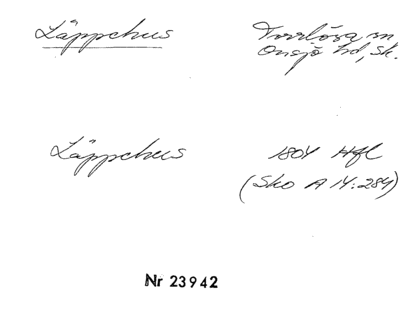 Läppchus
Torrlösa sn
Onsjö hd, Sk.
Läppchus
1804 Hfl
(Sko A 14:284)
Nr 23942